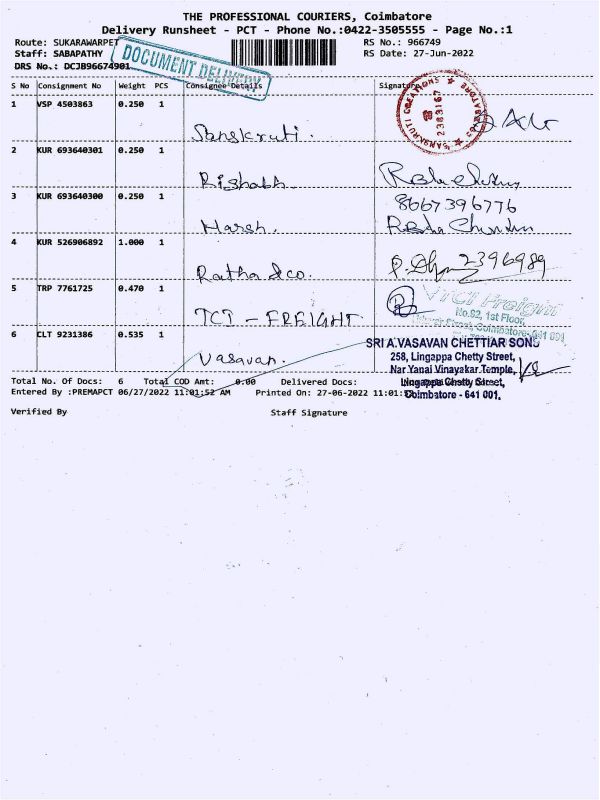 THE PROFESSIONAL COURIERS, Coimbatore
Delivery Runsheet - PCT - Phone No.:0422-3505555 - Page No.:1
Route: SUKARAWARPET RS No.: 966749
Staff: SABAPATHY RS Date: 27-Jun-2022
DRS No.: DCJB96674901
DOCUMENT DELIVERY
S No Consignment No Weight PCS Consignee Details Signature
1 VSP 4503863 0.250 1
Sanskruti.
2 KUR 693640301 0.250 1
Rishabh
3 KUR 693640300 0.250 1 8667396776
Harsh.
4 KUR 526906892 1.000 1
Ratha & co. 2396989
5 TRP 7761725 0.470 1
TCI - FREIGHT No.92, 1st Floor,
6 CLT 9231386 0.535 1
Vasavan.
SRI A.VASAVAN CHETTIAR SONS
258, Lingappa Chetty Street,
Nar Yanai Vinayakar Temple,
Lingappa Chetty Street,
Coimbatore - 641 001.
Total No. Of Docs: 6 Total COD Amt: 0.00 Delivered Docs:
Entered By :PREMAPCT 06/27/2022 11:01:52 AM Printed On: 27-06-2022 11:01:
Verified By Staff Signature